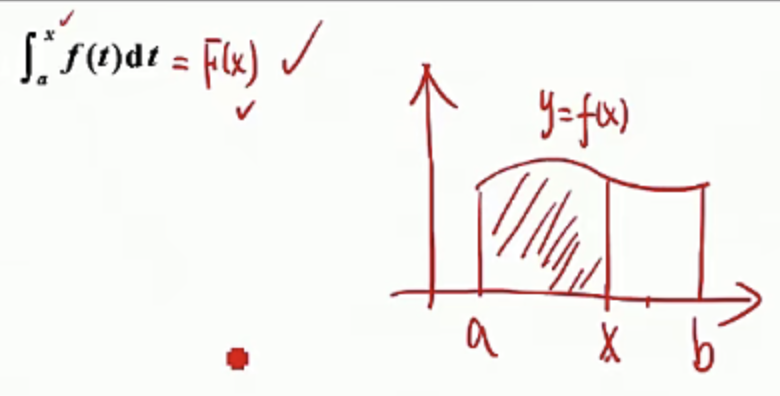 ∫ₐˣ f(t)dt = F(x)
y=f(x)
a x b